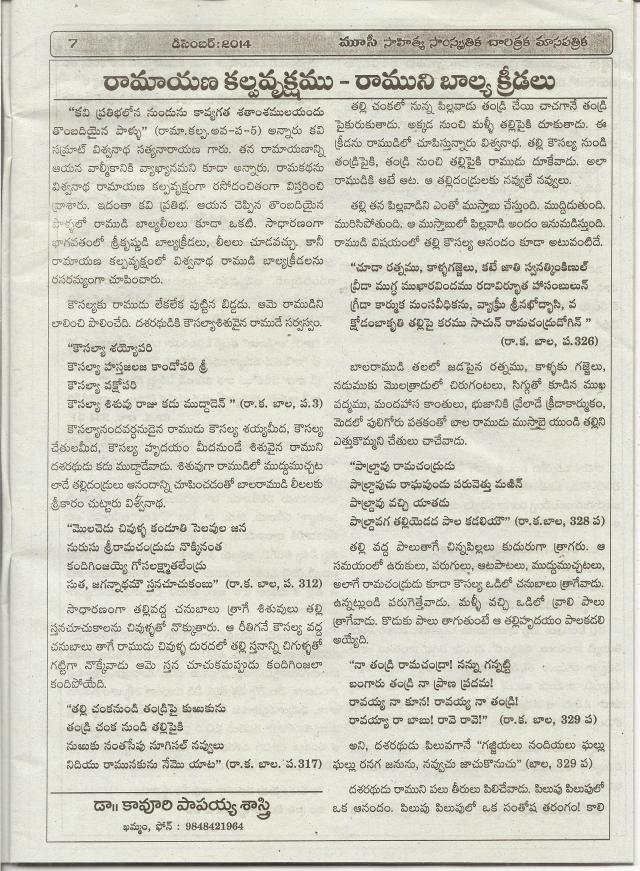 7 డిసెంబర్:2014 మూసీ సాహిత్య సాంస్కృతిక చారిత్రక మాసపత్రిక
రామాయణ కల్పవృక్షము - రాముని బాల్య క్రీడలు
"కవి ప్రతిభలోన నుండును కావ్యగత శతాంశములయందు
తొంబదియైన పాళ్ళు" (రామా.కల్ప.అవ-ప-5) అన్నారు కవి
సమ్రాట్ విశ్వనాథ సత్యనారాయణ గారు. తన రామాయణాన్ని
ఆయన వాల్మీకానికి వ్యాఖ్యానమని కూడా అన్నారు. రామకథను
విశ్వనాథ రామాయణ కల్పవృక్షంగా రసోదంచితంగా విస్తరించి
వ్రాశారు. ఇదంతా కవి ప్రతిభ. ఆయన చెప్పిన తొంబదియైన
పాళ్ళలో రాముడి బాల్యలీలలు కూడా ఒకటి. సాధారణంగా
భాగవతంలో శ్రీకృష్ణుడి బాల్యక్రీడలు, లీలలు చూడవచ్చు. కానీ
రామాయణ కల్పవృక్షంలో విశ్వనాథ రాముడి బాల్యక్రీడలను
రసరమ్యంగా చూపించారు.
కౌసల్యకు రాముడు లేకలేక పుట్టిన బిడ్డడు. ఆమె రాముడిని
లాలించి పాలించేది. దశరథుడికి కౌసల్యాశిశువైన రాముడే సర్వస్వం.
"కౌసల్యా శయ్యోపరి
కౌసల్యా హస్తజలజ కాండోపరి శ్రీ
కౌసల్యా వక్షోపరి
కౌసల్యా శిశువు రాజు కడు ముద్దాడెన్ " (రా.క. బాల, ప.3)
కౌసల్యానందవర్ధనుడైన రాముడు కౌసల్య శయ్యమీద, కౌసల్య
చేతులమీద, కౌసల్య హృదయం మీదనుండే శిశువైన రాముని
దశరథుడు కడు ముద్దాడేవాడు. శిశువుగా రాముడిలో ముద్దుముచ్చట
లాడే తల్లిదండ్రులు ఆనందాన్ని చూపించడంతో బాలరాముడి లీలలకు
శ్రీకారం చుట్టారు విశ్వనాథ.
"మొలచెడు చివుళ్ళ కండూతి సెలవుల జన
నురుసు శ్రీరామచంద్రుడు నొక్కినంత
కందిగింజయ్యె గోసలక్ష్మాతలేంద్రు
సుత, జగన్నాథమౌ స్తనచూచుకంబు" (రా.క. బాల, ప. 312)
సాధారణంగా తల్లివద్ద చనుబాలు త్రాగే శిశువులు తల్లి
స్తనచూచుకాలను చివుళ్ళతో నొక్కుతారు. ఆ రీతిగనే కౌసల్య వద్ద
చనుబాలు తాగే రాముడు చివుళ్ళ దురదలో తల్లి స్తనాన్ని చిగుళ్లతో
గట్టిగా నొక్కేవాడు ఆమె స్తన చూచుకమప్పుడు కందిగింజలా
కందిపోయేది.
"తల్లి చంకనుండి తండ్రిపై కుఱుకును
తండ్రి చంక నుండి తల్లిపైకి
నుఱుకు నంతసేపు నూగిసల్ నవ్వులు
నిదియు రామునకును నేమొ యాట" (రా.క. బాల. ప.317)
డా॥ కావూరి పాపయ్య శాస్త్రి
ఖమ్మం, ఫోన్ : 9848421964
తల్లి చంకలో నున్న పిల్లవాడు తండ్రి చేయి చాచగానే తండ్రి
పైకురుకుతాడు. అక్కడ నుంచి మళ్ళీ తల్లిపైకి దూకుతాడు. ఈ
క్రీడను రాముడిలో చూపిస్తున్నారు విశ్వనాథ. తల్లి కౌసల్య నుండి
తండ్రిపైకి, తండ్రి నుంచి తల్లిపైకి రాముడు దూకేవాడు. అలా
రాముడికి ఆటే ఆట. ఆ తల్లిదండ్రులకు నవ్వులే నవ్వులు.
తల్లి తన పిల్లవాడిని ఎంతో ముస్తాబు చేస్తుంది. ముద్దిడుతుంది.
మురిసిపోతుంది. ఆ ముస్తాబులో పిల్లవాడి అందం ఇనుమడిస్తుంది.
రాముడి విషయంలో తల్లి కౌసల్య ఆనందం కూడా అటువంటిదే.
"చూడా రత్నము, కాళ్ళగజ్జెలు, కటే జాతి స్వనత్కింకిణుల్
వ్రీడా ముగ్ధ ముఖారవిందము రదావిర్భూత హాసంబులున్
గ్రీడా కార్ముక మంసవీథికను, వ్యాఘ్రీ శ్రీనఖోద్భాసి, వ
క్షోడంబాకృతి తల్లిపై కరము సాచున్ రామచంద్రుడోగిన్ "
(రా.క. బాల, ప.326)
బాలరాముడి తలలో జడపైన రత్నము, కాళ్ళకు గజ్జెలు,
నడుముకు మొలత్రాడులో చిరుగంటలు, సిగ్గుతో కూడిన ముఖ
పద్మము, మందహాస కాంతులు, భుజానికి వ్రేలాడే క్రీడాకార్ముకం,
మెడలో పులిగోరు పతకంతో బాల రాముడు ముస్తాబై యుండి తల్లిని
ఎత్తుకొమ్మని చేతులు చాచేవాడు.
"పాల్ద్రావు రామచంద్రుడు
పాల్ద్రావుచు రాఘవుండు పరువెత్తు మఱిన్
పాల్ద్రావు వచ్చి యాతడు
పాల్ద్రావగ తల్లియెడద పాల కడలియౌ" (రా.క.బాల, 328 ప)
తల్లి వద్ద పాలుతాగే చిన్నపిల్లలు కుదురుగా త్రాగరు. ఆ
సమయంలో ఉరుకులు, పరుగులు, ఆటపాటలు, ముద్దుముచ్చటలు,
అలాగే రామచంద్రుడు కూడా కౌసల్య ఒడిలో చనుబాలు త్రాగేవాడు.
ఉన్నట్లుండి పరుగెత్తేవాడు. మళ్ళీ వచ్చి ఒడిలో వ్రాలి పాలు
త్రాగేవాడు. కొడుకు పాలు తాగుతుంటే ఆ తల్లిహృదయం పాలకడలి
అయ్యేది.
"నా తండ్రి రామచంద్రా! నన్ను గన్నట్టి
బంగారు తండ్రి నా ప్రాణ ప్రదమ!
రావయ్య నా కూన! రావయ్య నా తండ్రి!
రావయ్యా రా బాబు! రావె రావె!" (రా.క. బాల, 329 ప)
అని, దశరథుడు పిలువగానే "గజ్జియలు నందియలు ఘల్లు
ఘల్లు రనగ జనును, నవ్వుచు జాచుకొనుచు" (బాల, 329 ప)
దశరథుడు రాముని పలు తీరులు పిలిచేవాడు. పిలుపు పిలుపులో
ఒక ఆనందం. పిలుపు పిలుపులో ఒక సంతోష తరంగం! కాలి